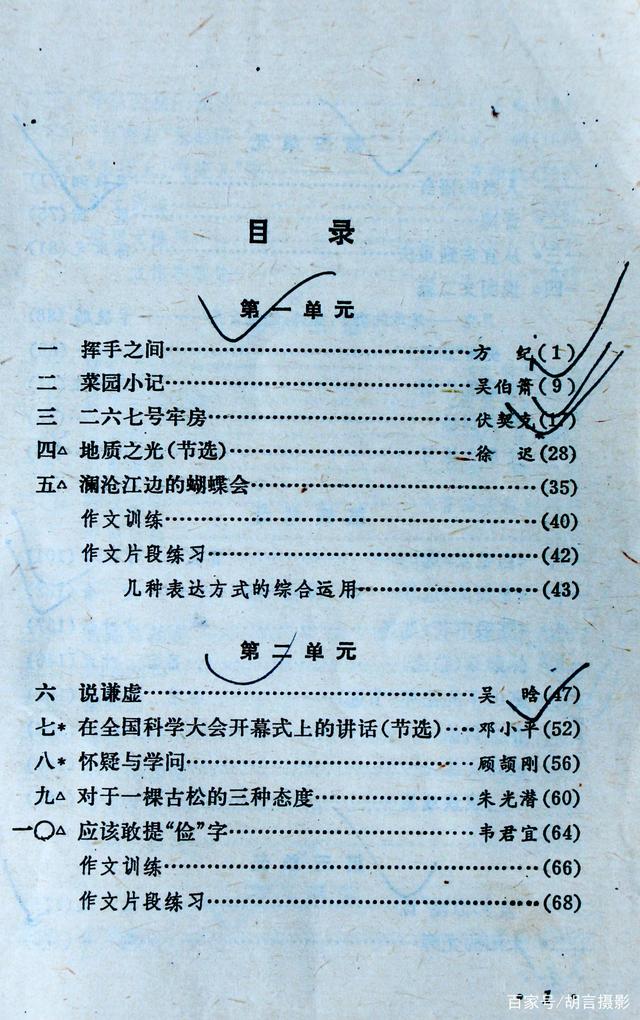 目 录
第一单元
一 挥手之间……方 纪(1)
二 菜园小记……吴伯箫(9)
三 二六七号牢房……伏契克(17)
四△ 地质之光(节选)……徐 迟(28)
五△ 澜沧江边的蝴蝶会……(35)
作文训练……(40)
作文片段练习……(42)
几种表达方式的综合运用……(43)
第二单元
六 说谦虚……吴 晗(47)
七* 在全国科学大会开幕式上的讲话(节选)……邓小平(52)
八* 怀疑与学问……顾颉刚(56)
九△ 对于一棵古松的三种态度……朱光潜(60)
一〇△ 应该敢提“俭”字……韦君宜(64)
作文训练……(66)
作文片段练习……(68)
· 1 ·
百家号/胡言摄影